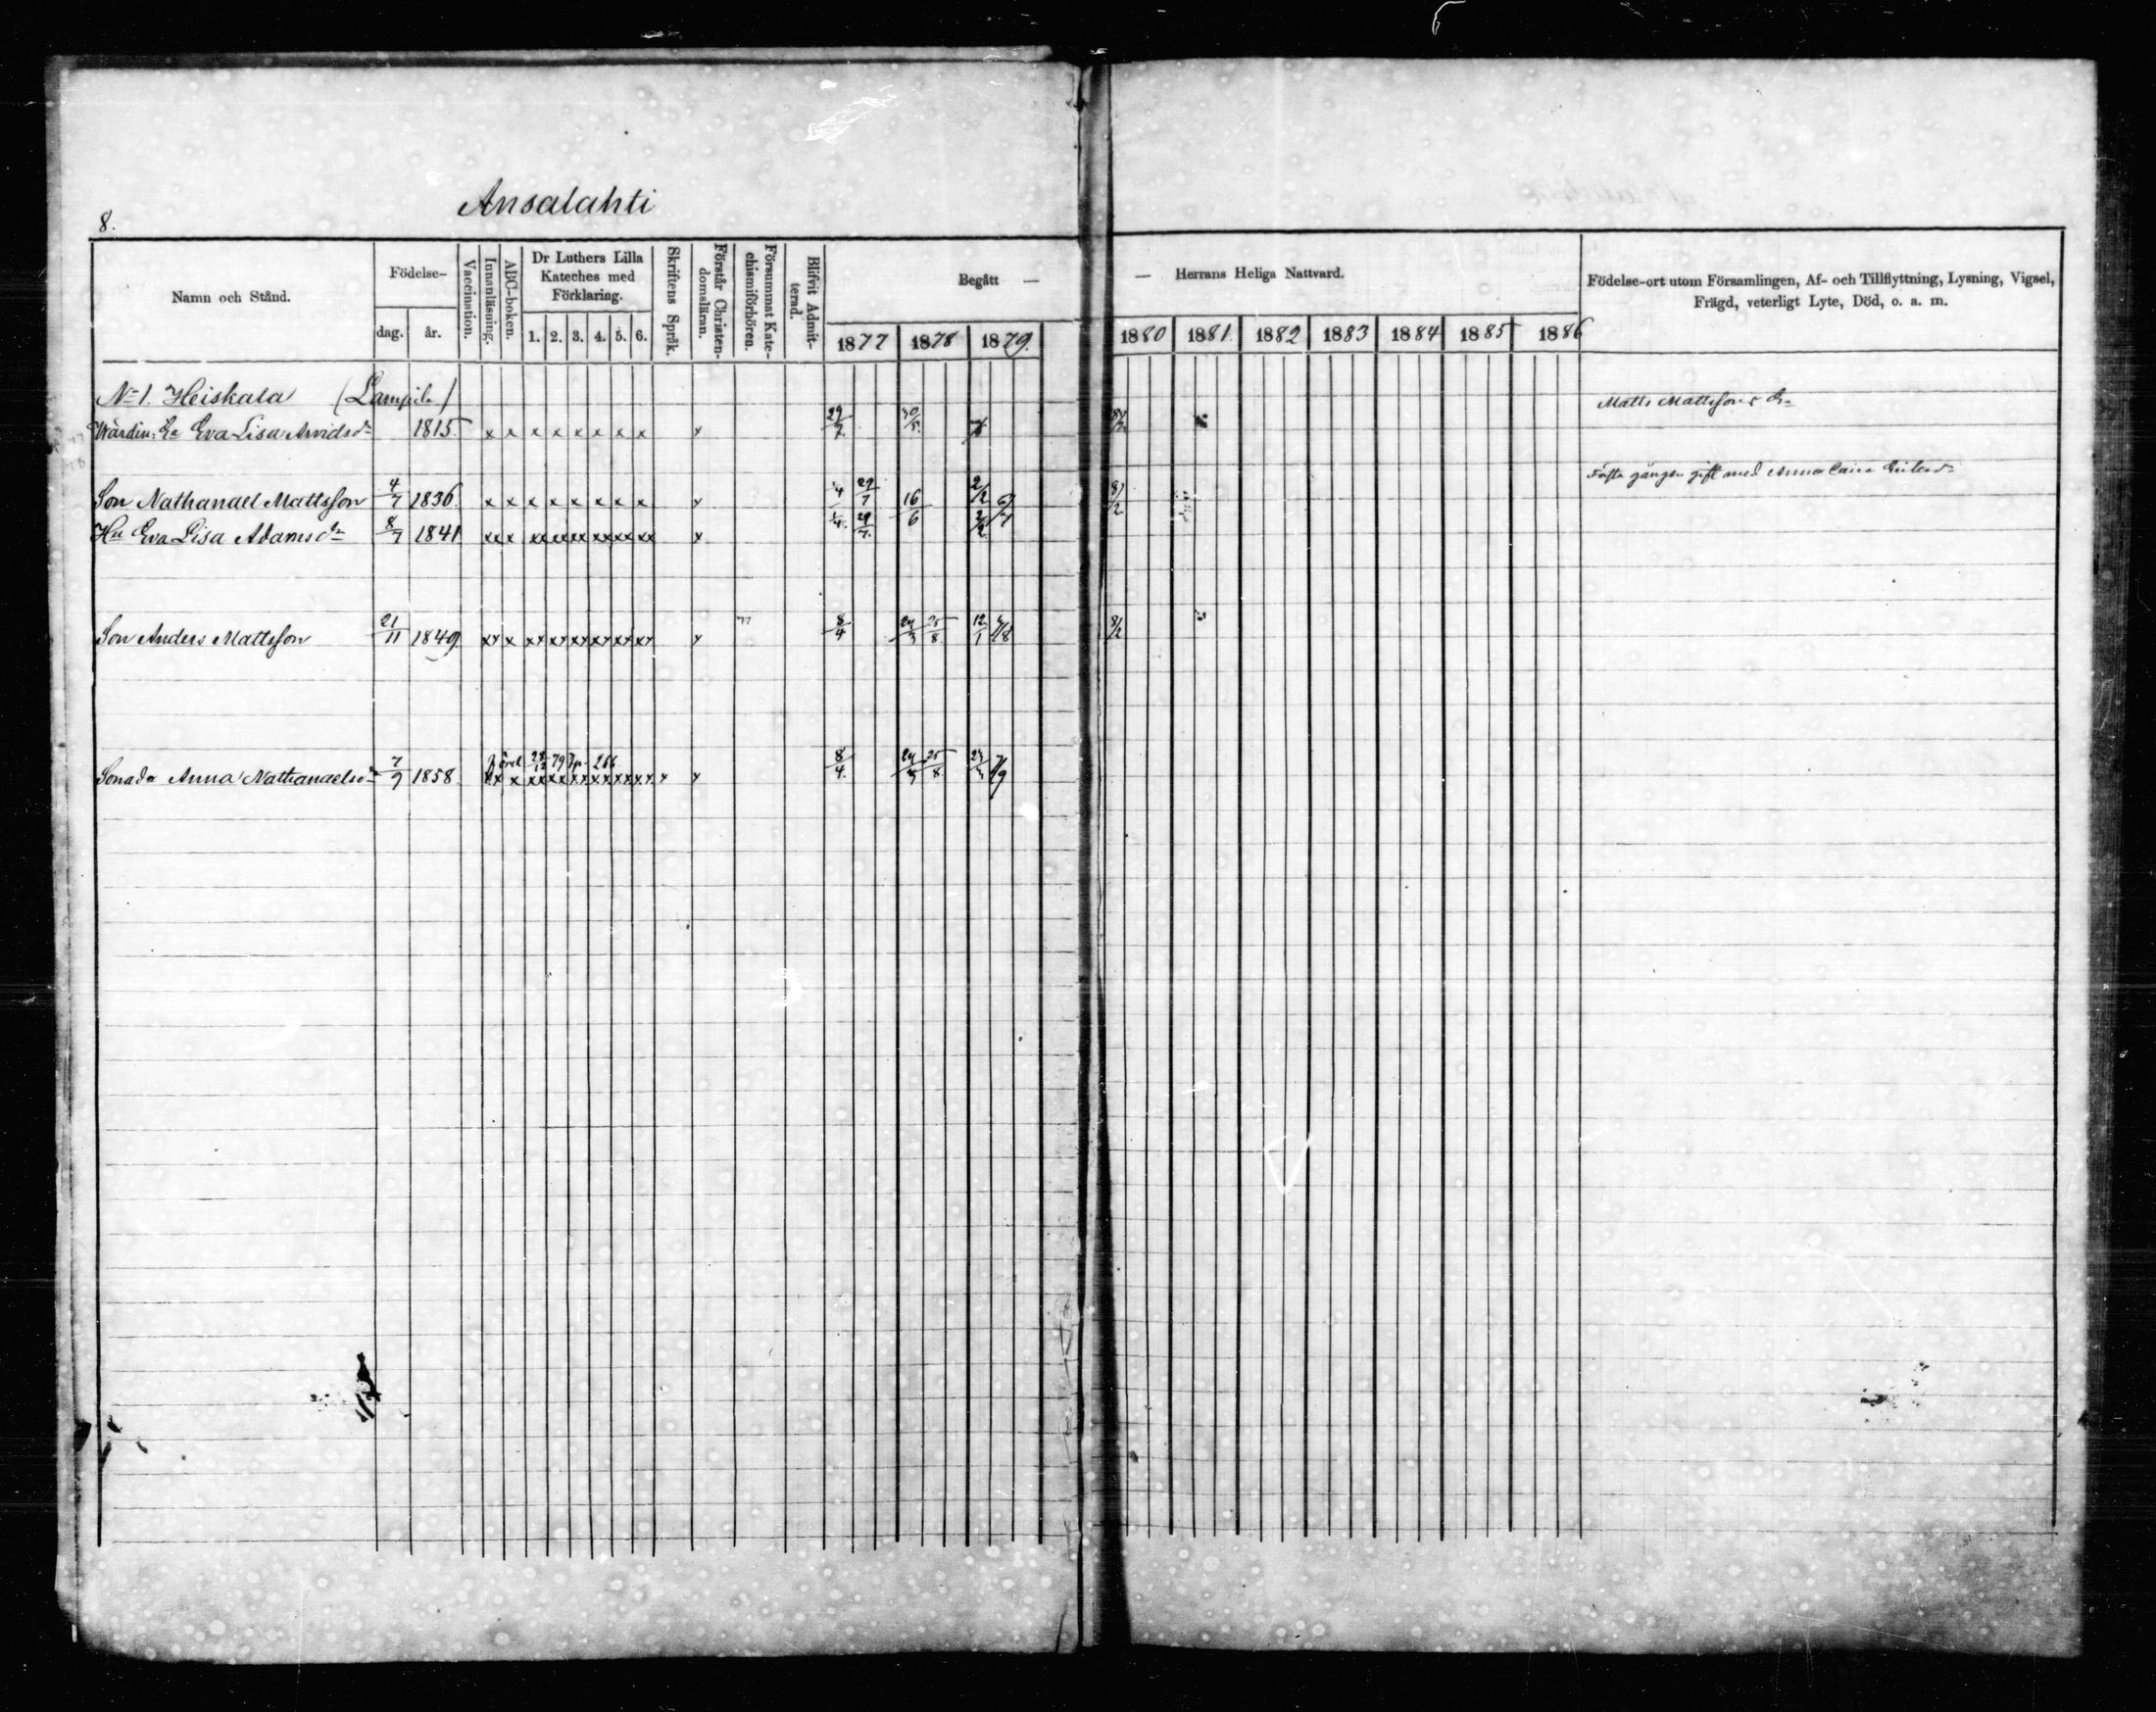 8.
Ansalahti
Namn och Stånd.
Födelse-
dag.
år.
Vaccination.
Innanläsning.
ABC-boken.
Dr Luthers Lilla
Kateches med
Förklaring.
1. 2. 3. 4. 5. 6.
Skriftens Språk.
Förstår Christen-
domsläran.
Försummat Kate-
chismiförhören.
Blifvit Admit-
terad.
Begått —
— Herrans Heliga Nattvard.
1877 1878 1879. 1880 1881. 1882 1883 1884 1885 1886
Födelse-ort utom Församlingen, Af- och Tillflyttning, Lysning, Vigsel,
Frägd, veterligt Lyte, Död, o. a. m.
No 1. Heiskala (Lampila)
Matts Mattssons Ea
Wärdin: Ea Eva Lisa Arvidsdr 1815. x x x x x x x x x 29/7 30/5
Första gången gift med Anna Caisa
Son Nathanael Mattsson 4/7 1836. x x x x x x x x x 29/7 16/6 2/2 8/2
Hu Eva Lisa Adamsdr 8/7 1841 xx x xx xx xx xx xx xx x 29/7 2/2
Son Anders Mattsson 21/11 1849. xx x xx xx xx xx xx xx x 77 8/4 24/3 25/8 12/1 8/2
28/12 79 p. 266
Sonado Anna Nathanaelsdr 7/9 1858. xx x xx xx xx xx xx xx x x 8/4 24/3 25/8